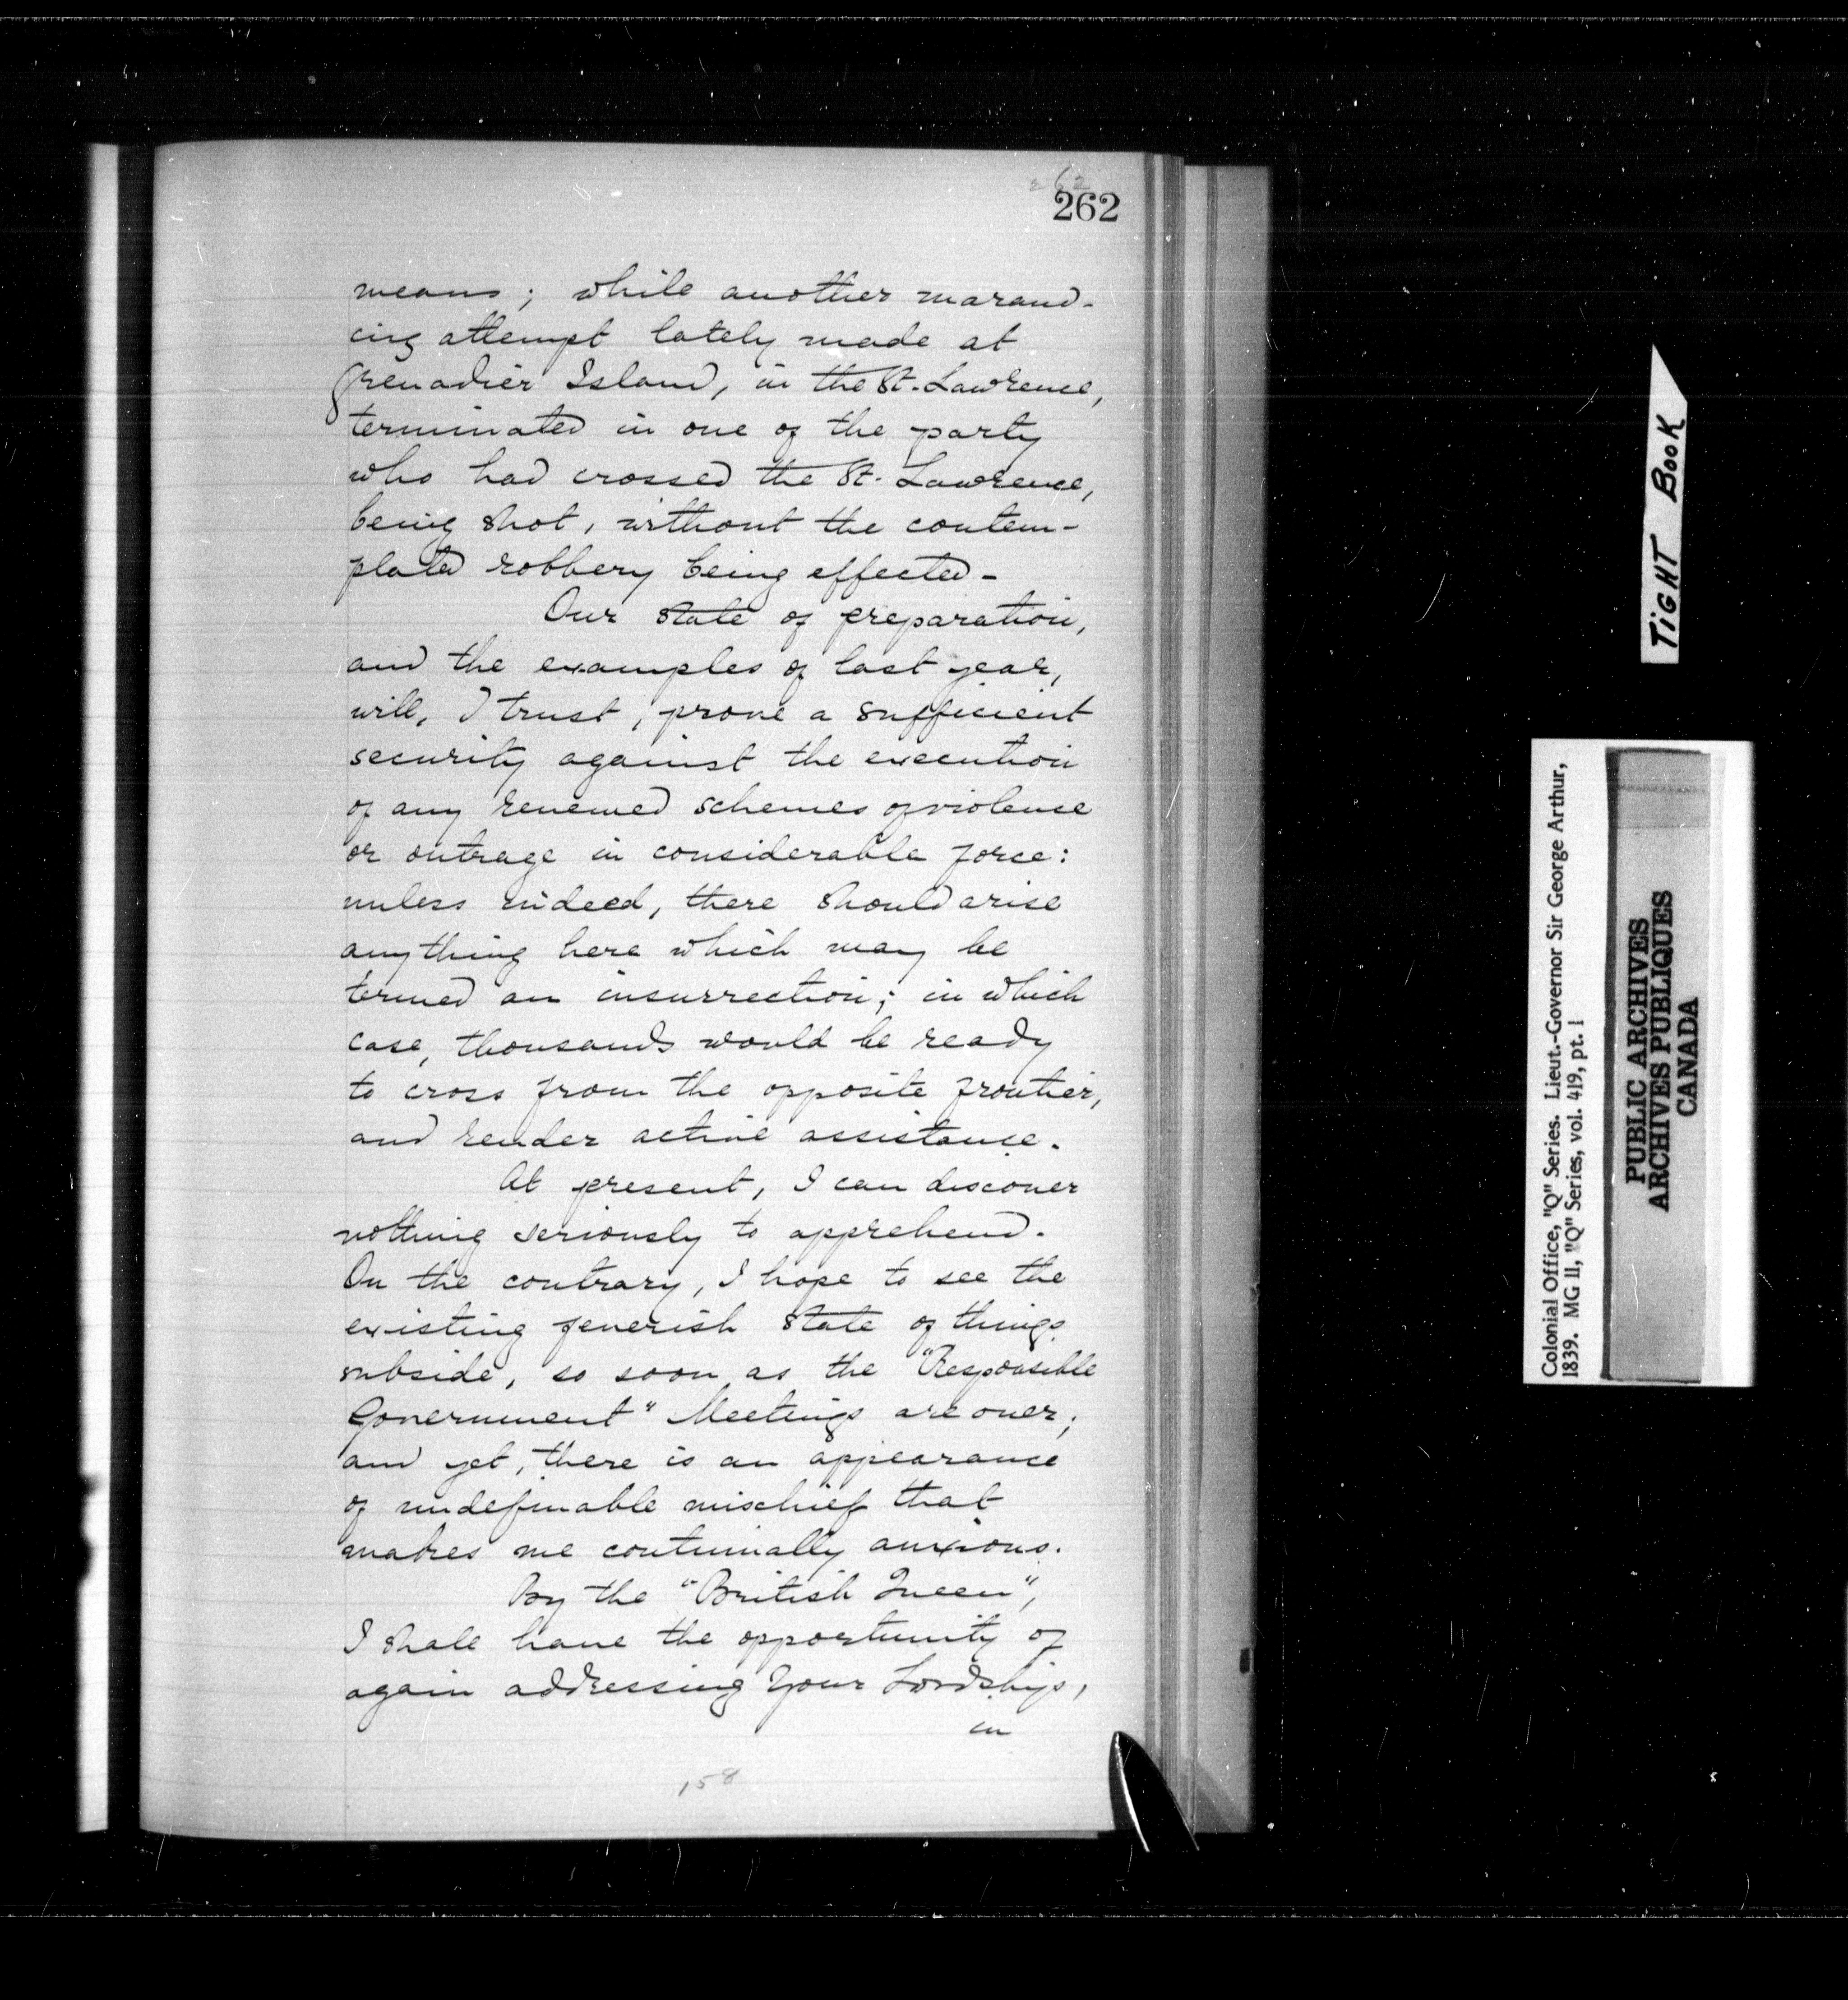 262
262
means; while another maraud-
ing attempt lately made at
Grenadier Island, in the St. Lawrence,
terminated in one of the party
who had crossed the St. Lawrence,
being shot, without the contem-
plated robbery being effected-
Our state of preparation,
and the examples of last year,
will, I trust, prove a sufficient
security against the execution
of any renewed schemes of violence
or outrage in considerable force:
unless indeed, there should arise
anything here which may be
termed an insurrection; in which
case, thousands would be ready
to cross from the opposite frontier,
and render active assistance.
At present, I can discover
nothing seriously to apprehend.
On the contrary, I hope to see the
existing feverish state of things
subside, so soon as the "Responsible
Government" Meetings are over;
and yet, there is an appearance
of undefinable mischief that
makes me continually anxious.
By the "British Queen",
I shall have the opportunity of
again addressing Your Lordship,
in
158
TIGHT BOOK
Colonial Office, "Q" Series. Lieut.-Governor Sir George Arthur,
1839. MG 11, "Q" Series, vol. 419, pt. 1
PUBLIC ARCHIVES
ARCHIVES PUBLIQUES
CANADA